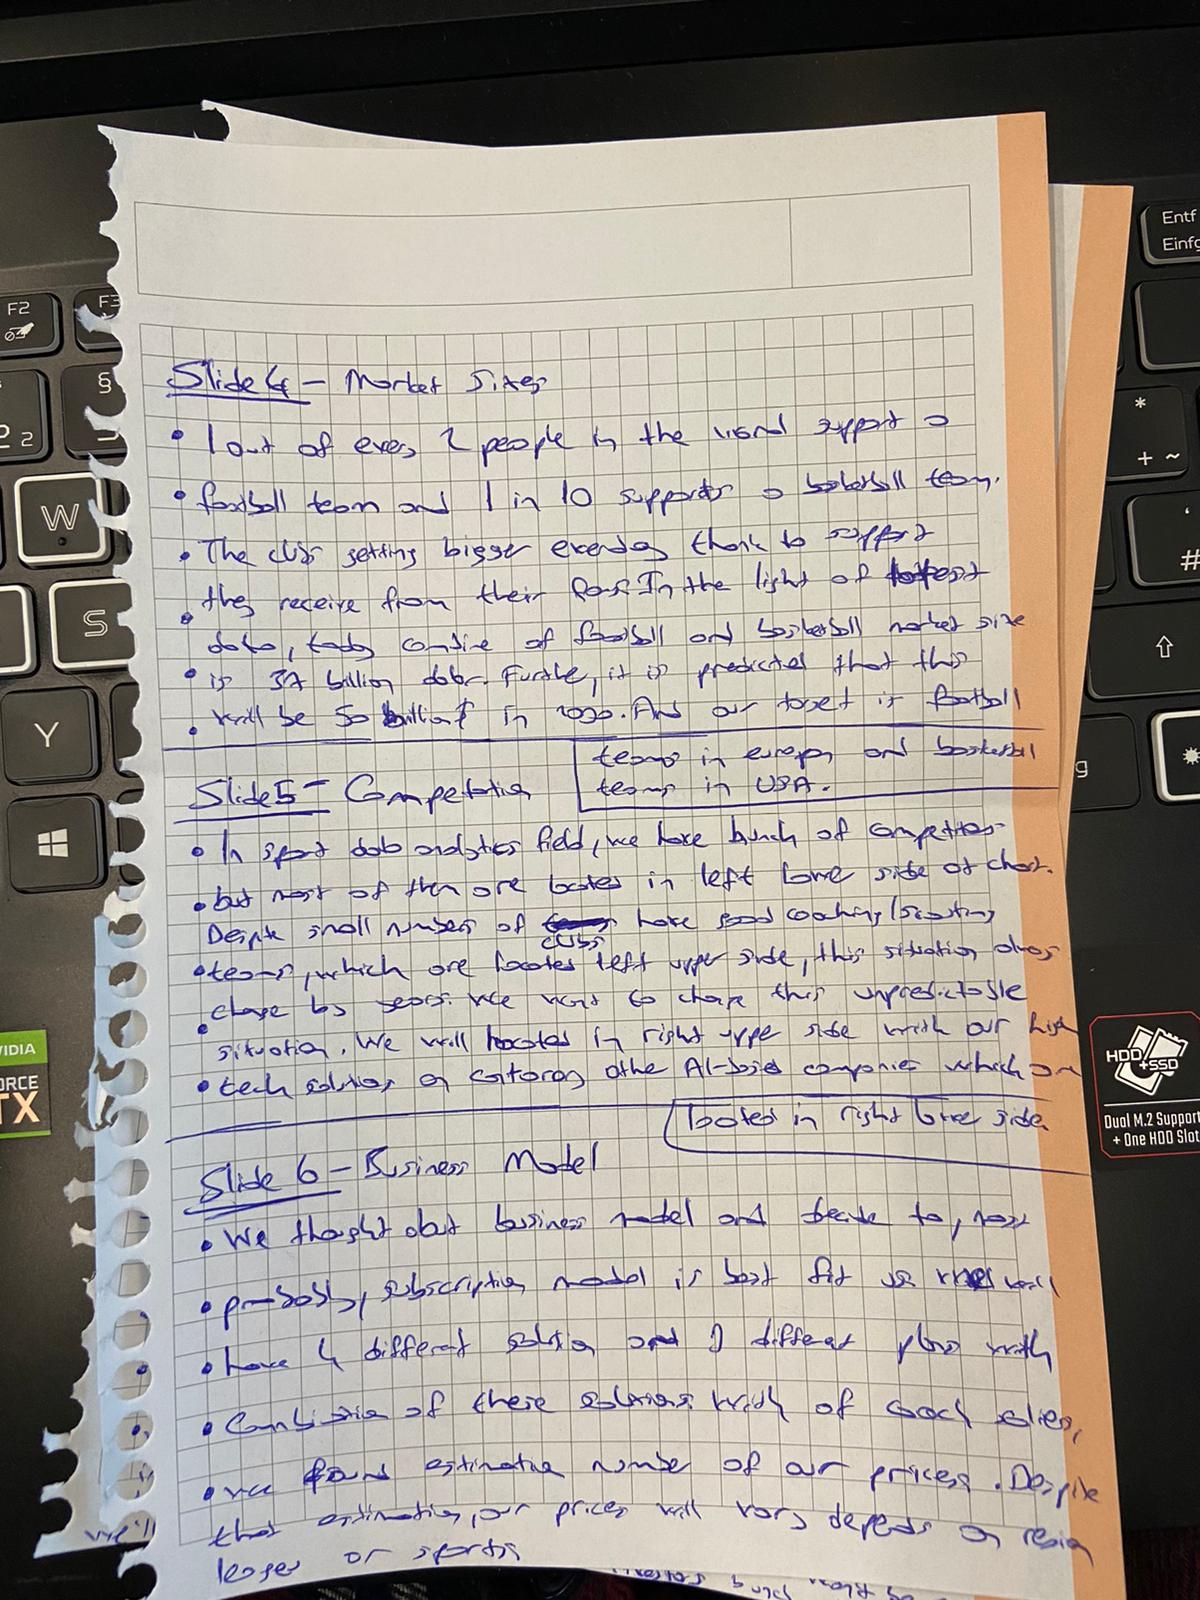 Slide 4 - Market Sizes
• 1 out of every 2 people in the world support a
• football team and 1 in 10 supports a basketball team.
• The clubs getting bigger everyday thank to support
• they receive from their fans. In the light of latest
data, today combine of football and basketball market size
• is 37 billion dolar. Further, it is predicted that this
• will be 50 billion $ in 2030. And our target is football
teams in europe and basketball
teams in USA.
Slide 5 - Competition
• In sport data analytics field, we have bunch of competitors
• but most of them are locates in left lower side of chart.
Despite small numbers of clubs have good coaching/scouting
• teams, which are locates left upper side, this situation always
• change by years. We want to change this unpredictable
situation. We will located in right upper side with our high
• tech solution on contorary other AI-based companies which are
located in right lower side.
Slide 6 - Business Model
• We thought about business model and decide to, most
• probably, subscription model is best fit us
• have 4 different solution and different plans with
• Combination of these solutions. With of coach
• we found estimation number of our prices. Despite
that estimation, our prices will vary depends on region
leages or sports
we'll
F2
F3
§
2
W
S
Y
Entf
Einfg
*
+ ~
'
#
g
NVIDIA
RTX
HDD
+SSD
Dual M.2 Support
+ One HDD Slot